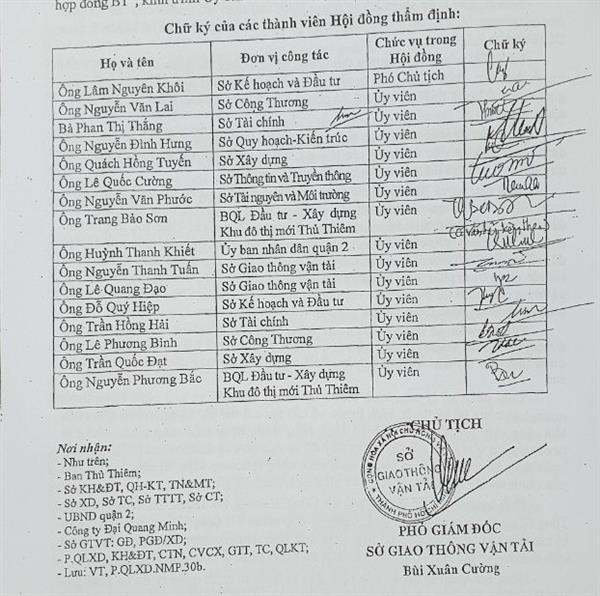 hợp đồng BT
Chữ ký của các thành viên Hội đồng thẩm định:
Họ và tên Đơn vị công tác Chức vụ trong Hội đồng Chữ ký
Ông Lâm Nguyên Khôi Sở Kế hoạch và Đầu tư Phó Chủ tịch
Ông Nguyễn Văn Lai Sở Công Thương Ủy viên
Bà Phan Thị Thắng Sở Tài chính Ủy viên
Ông Nguyễn Đình Hưng Sở Quy hoạch-Kiến trúc Ủy viên
Ông Quách Hồng Tuyến Sở Xây dựng Ủy viên
Ông Lê Quốc Cường Sở Thông tin và Truyền thông Ủy viên
Ông Nguyễn Văn Phước Sở Tài nguyên và Môi trường Ủy viên
Ông Trang Bảo Sơn BQL Đầu tư - Xây dựng Ủy viên
Khu đô thị mới Thủ Thiêm
Ông Huỳnh Thanh Khiết Ủy ban nhân dân quận 2 Ủy viên
Ông Nguyễn Thanh Tuấn Sở Giao thông vận tải Ủy viên
Ông Lê Quang Đạo Sở Giao thông vận tải Ủy viên
Ông Đỗ Quý Hiệp Sở Kế hoạch và Đầu tư Ủy viên
Ông Trần Hồng Hải Sở Tài chính Ủy viên
Ông Lê Phương Bình Sở Công Thương Ủy viên
Ông Trần Quốc Đạt Sở Xây dựng Ủy viên
Ông Nguyễn Phương Bắc BQL Đầu tư - Xây dựng Ủy viên
Khu đô thị mới Thủ Thiêm
Nơi nhận:
- Như trên;
- Ban Thủ Thiêm;
- Sở KH&ĐT, QH-KT, TN&MT;
- Sở XD, Sở TC, Sở TTTT, Sở CT;
- UBND quận 2;
- Công ty Đại Quang Minh;
- Sở GTVT: GĐ, PGĐ/XD;
- P.QLXD, KH&ĐT, CTN, CVCX, GTT, TC, QLKT;
- Lưu: VT, P.QLXD.NMP.30b.
CHỦ TỊCH
SỞ
GIAO THÔNG
VẬN TẢI
THÀNH PHỐ HỒ CHÍ
PHÓ GIÁM ĐỐC
SỞ GIAO THÔNG VẬN TẢI
Bùi Xuân Cường